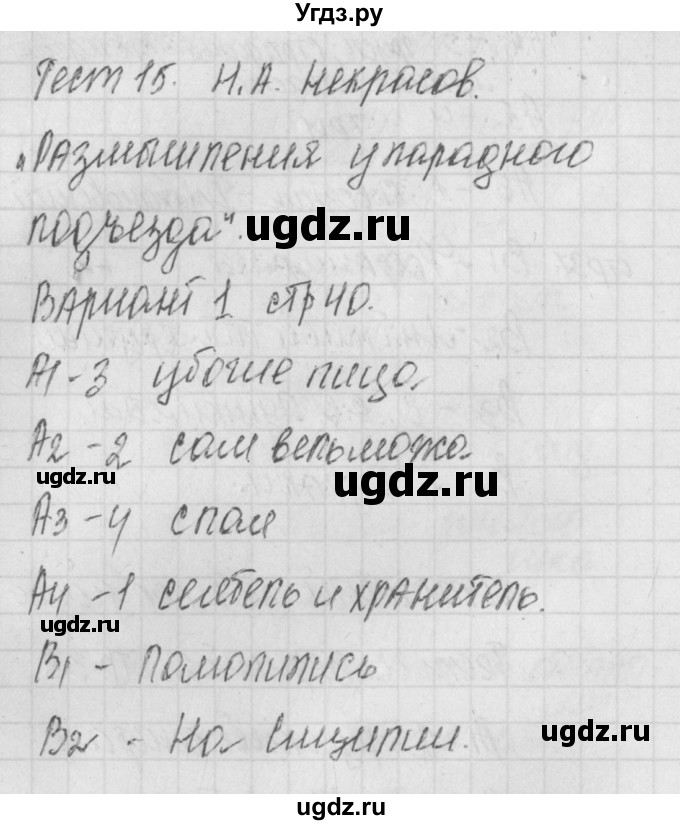 Угдз.ру
Тест 15. Н.А. Некрасов.
„Размышления у парадного
подъезда".
ugdz.ru
Вариант 1 стр 40.
А1 - 3 убогие лица
А2 - 2 сам вельможа
ugdz.ru
ugdz.ru
А3 - 4 спал
А4 - 1 сеятель и хранитель.
ugdz.ru
В1 - Помолились
В2 - На Сицилии.
ugdz.ru
ugdz.ru